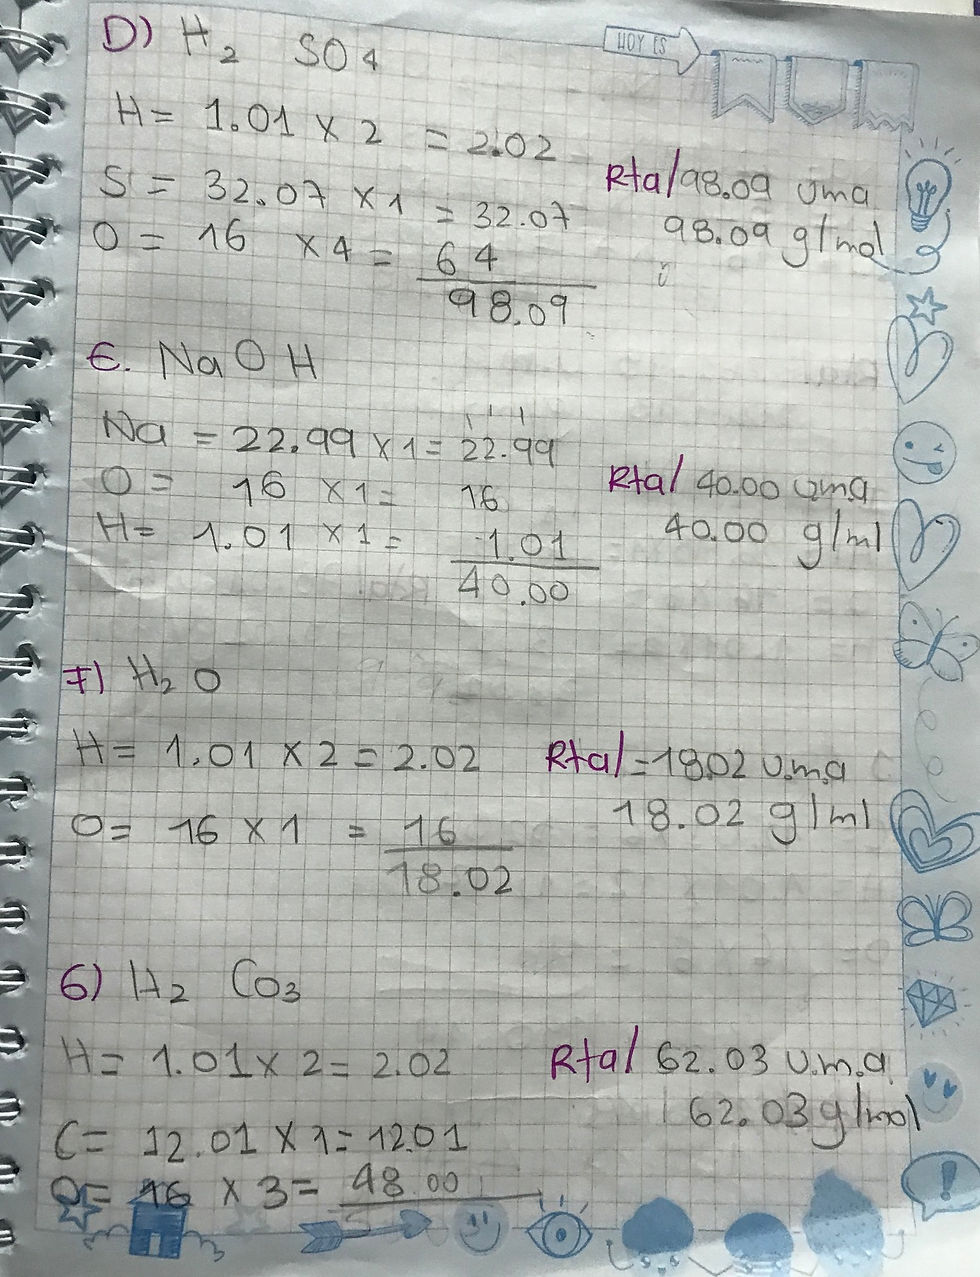 HOY ES
D) H2 SO4
H = 1.01 x 2 = 2.02
S = 32.07 x 1 = 32.07
O = 16 x 4 = 64
98.09
Rta/ 98.09 uma
98.09 g/mol
E. NaOH
Na = 22.99 x 1 = 22.99
O = 16 x 1 = 16
H = 1.01 x 1 = 1.01
40.00
Rta/ 40.00 uma
40.00 g/ml
F) H2O
H = 1.01 x 2 = 2.02
O = 16 x 1 = 16
18.02
Rta/ = 18.02 u.m.a
18.02 g/ml
G) H2 Co3
H = 1.01 x 2 = 2.02
C = 12.01 x 1 = 12.01
O = 16 x 3 = 48.00
Rta/ 62.03 u.m.a
62.03 g/mol